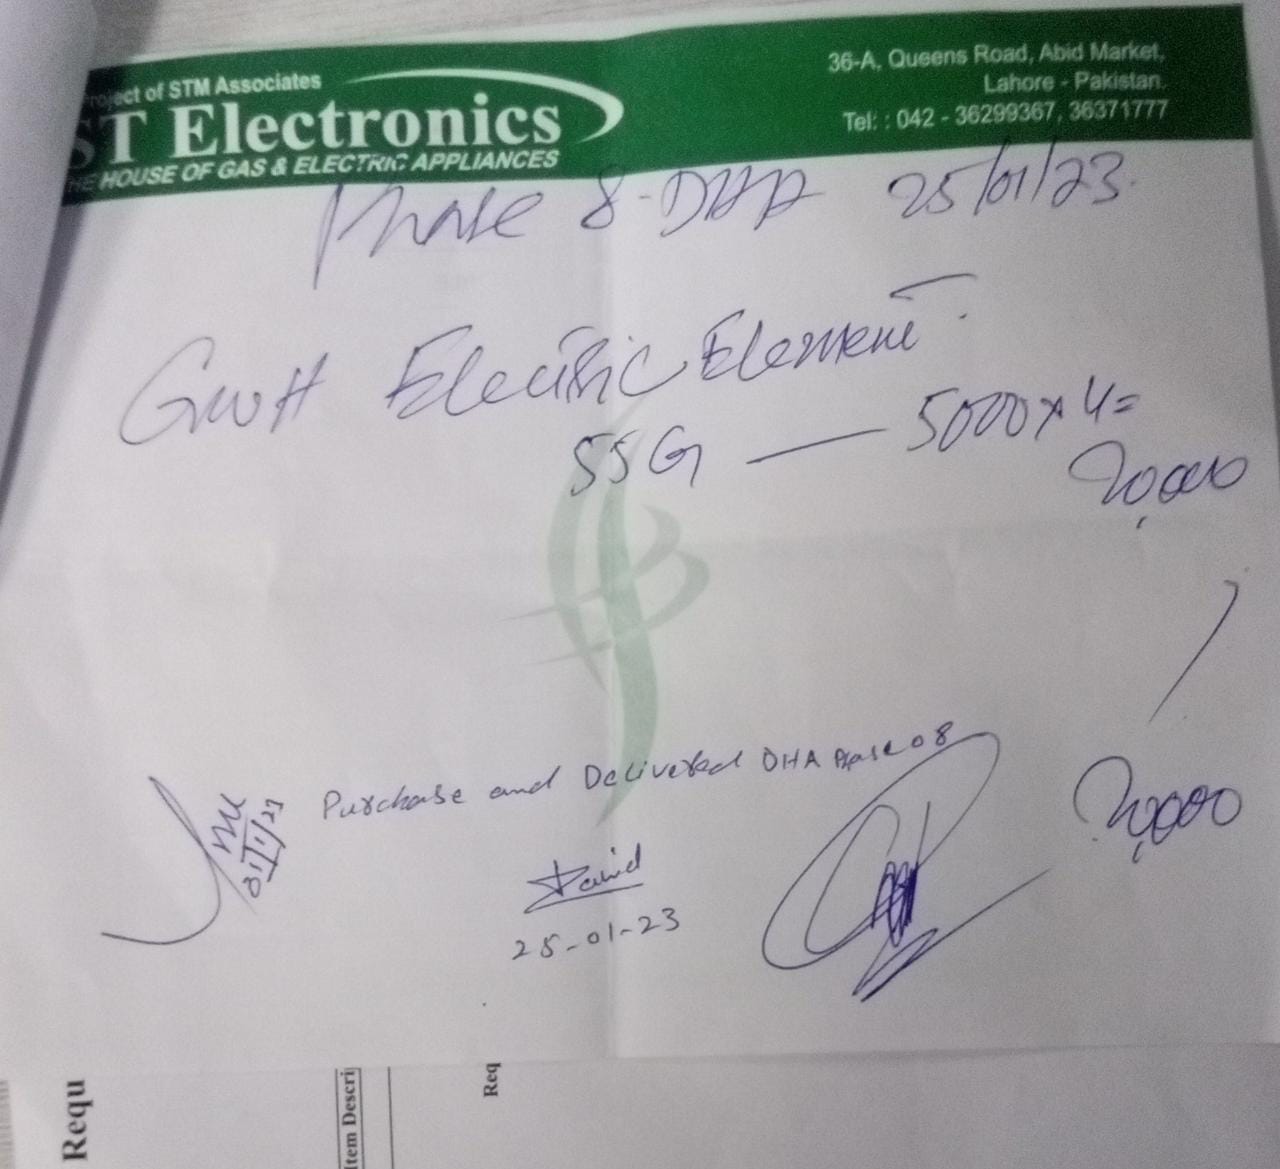 Project of STM Associates
ST Electronics
THE HOUSE OF GAS & ELECTRIC APPLIANCES
36-A, Queens Road, Abid Market,
Lahore - Pakistan.
Tel: : 042 - 36299367, 36371777
Phase 8-DHA 25/01/23.
Electric Element
55G — 5000 x 4=
20,000
Purchase and Delivered DHA Phase 08
20,000
25-01-23
Requ
Item Descri
Req